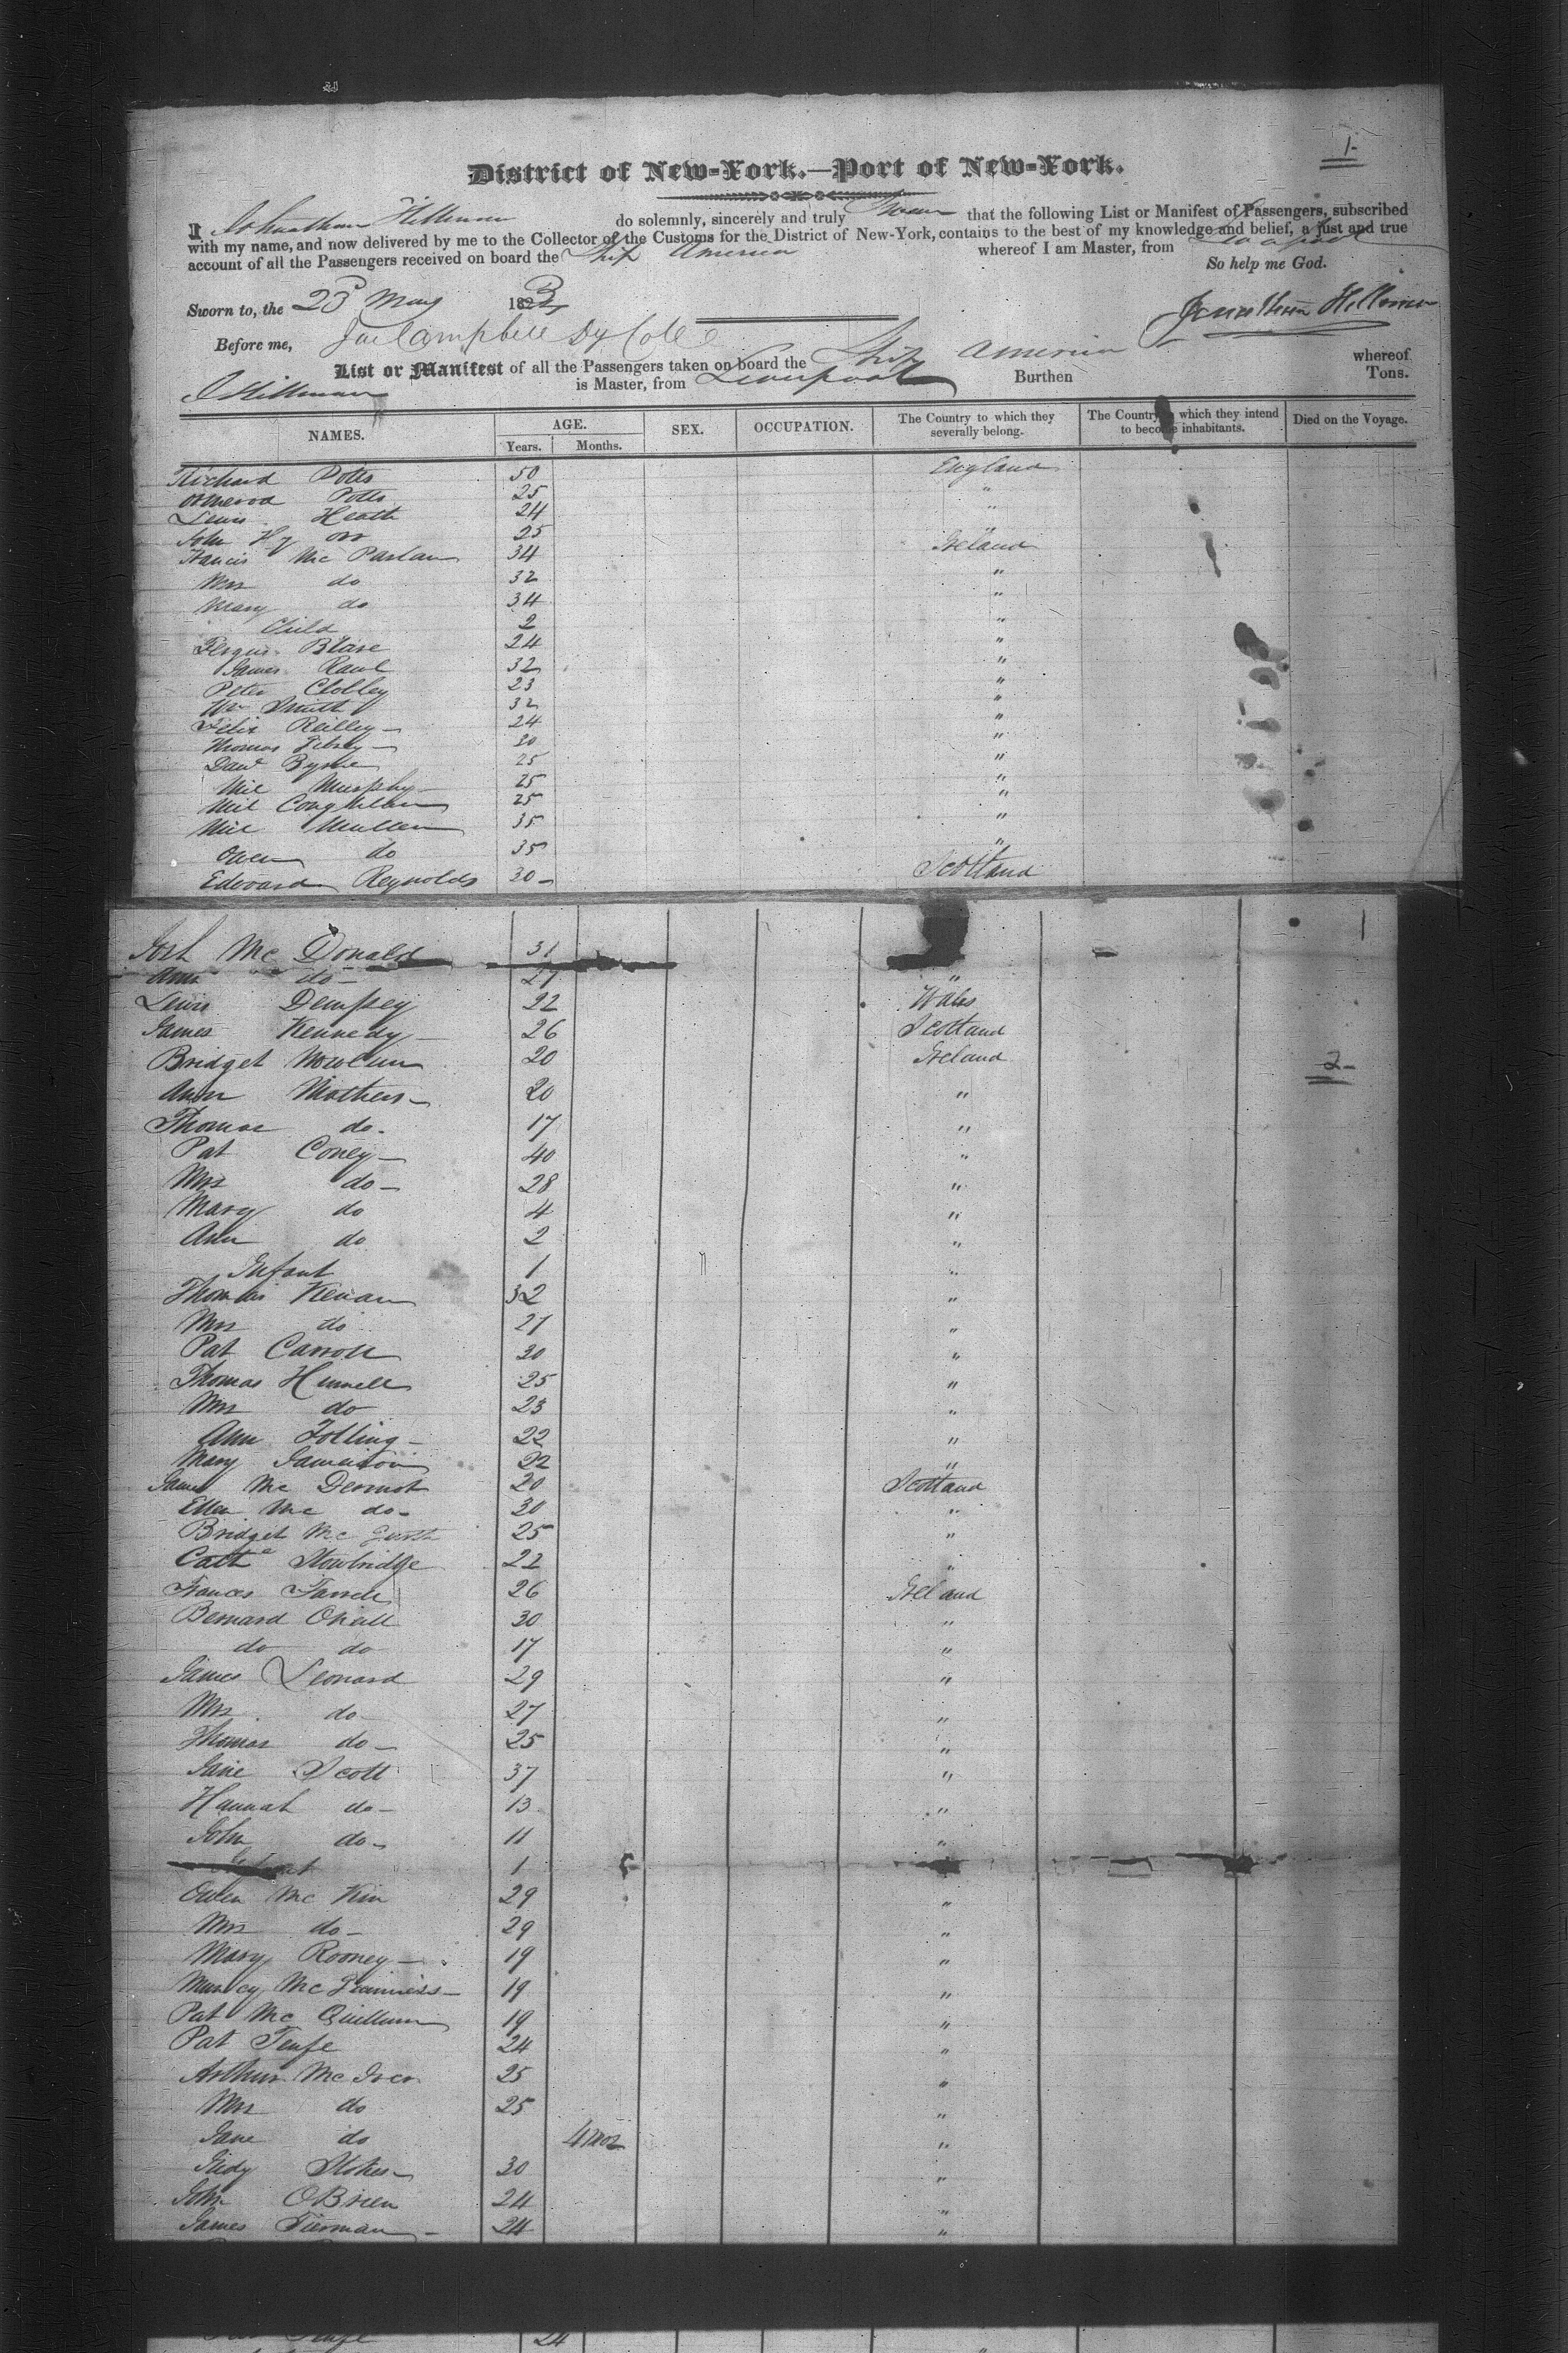 1-
District of New-York.—Port of New-York.
I Johnathan Hillman do solemnly, sincerely and truly Swear that the following List or Manifest of Passengers, subscribed
with my name, and now delivered by me to the Collector of the Customs for the District of New-York, contains to the best of my knowledge and belief, a just and true
account of all the Passengers received on board the Ship America whereof I am Master, from
So help me God.
Sworn to, the 23 May 182
Jonathan Hillman
Before me, Campbell Dy Coll
List or Manifest of all the Passengers taken on board the Ship America whereof
J Hillman is Master, from Liverpool Burthen Tons.
NAMES. AGE. SEX. OCCUPATION. The Country to which they severally belong. The Country to which they intend to become inhabitants. Died on the Voyage.
Years. Months.
Richard Potts 50 England
Potts 25 "
Lewis Heath 24 "
John Hy Orr 25 "
Francis Mc Parlan 34 Ireland
Mrs do 32 "
Mary do 34 "
Child 2 "
24 "
James 32 "
Peter 23 "
Wm Smith 32 "
Felix Reilley 24 "
Thomas "
Byrne 25 "
Mic Murphy 25 "
25 "
Mic Mullen 35 "
Owen do 35 "
Edward Reynolds 30 - Scotland
Mc Donald 31 1
Ann do - 27 "
Lewis Dempsey 22 Wales
James Kennedy 26 Scotland
Bridget Nowlan 20 Ireland
2-
Ann Mathers 20 "
Thomas do. 17 "
Pat Coney 40 "
Mrs do 28 "
Mary do 4 "
Ann do 2 "
Infant 1 "
Thomas Kenan 32 "
Mrs do 21 "
Pat Carroll 30 "
Thomas 25 "
Mrs do 23 "
Ann 22 "
Mary 22 "
James Mc Dermot 20 Scotland
Ellen Mc do - 30 "
Bridget Mc 25 "
Cathe 22 "
Frances 26 Ireland
Bernard ONeill 30 "
do do 17 "
James Leonard 29 "
Mrs. do 27 "
Thomas do 25 "
Jane Scott 37 "
Hannah do 13 "
John do 11 "
Infant 1
Owen Mc Kin 29 "
Mrs do 29 "
Mary Rooney 19 "
Mc 19 "
Pat Mc Quillan 19 "
Pat 24 "
Arthur Mc Iver 25 "
Mrs do 25 "
Jane do 4 mos "
Judy Stokes 30 "
John OBrien 24 "
James Tiernan 24 "
24